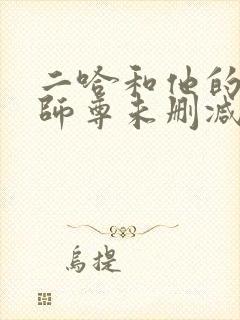 二哈和他的
師尊未删减
烏提